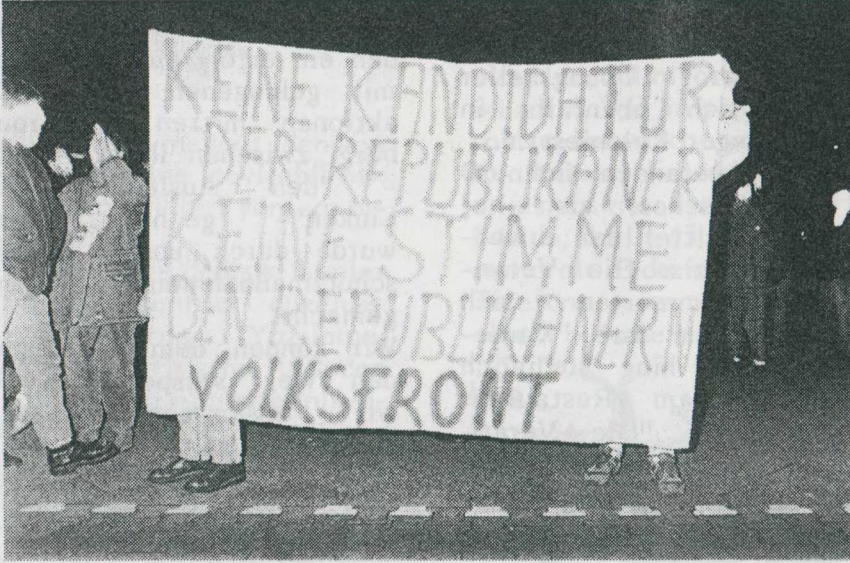 KEINE KANDIDATUR
DER REPUBLIKANER
KEINE STIMME
DEN REPUBLIKANERN
VOLKSFRONT